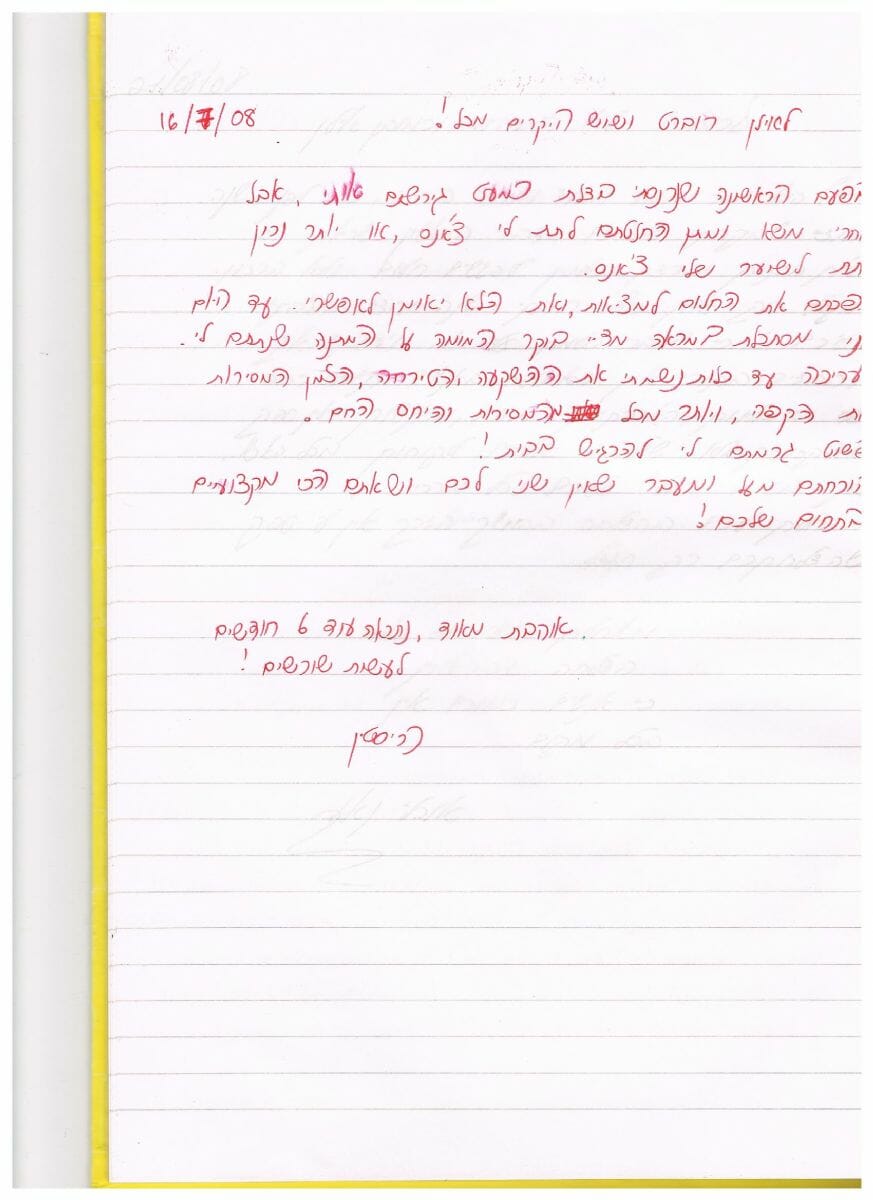 16/7/08
לאילן רוברט ושוש היקרים מכל!
פעם הראשונה שנכנסתי בדלת כמעט גירשתם אותי, אבל
חרי משא ומתן החלטתם לתת לי צ'אנס, או יותר נכון
תת לשיער שלי צ'אנס.
פכתם את החלום למציאות, ואת הלא יאומן לאפשרי. עד היום
ני מסתכלת במראה מדיי בוקר המומה על המתנה שנתתם לי.
עריכה עד כלות נשמתי את ההשקעה, הטירחה, הזמן המסירות
ות הקפה, ויותר מכל מהמסירות והיחס החם.
שוט גרמתם לי להרגיש בבית!
הוכחתם מעל ומעבר שאין שני לכם ושאתם הכי מקצועיים
בתחום שלכם!
אוהבת מאוד, נתראה עוד 6 חודשים
לעשות שורשים!
כריסטין